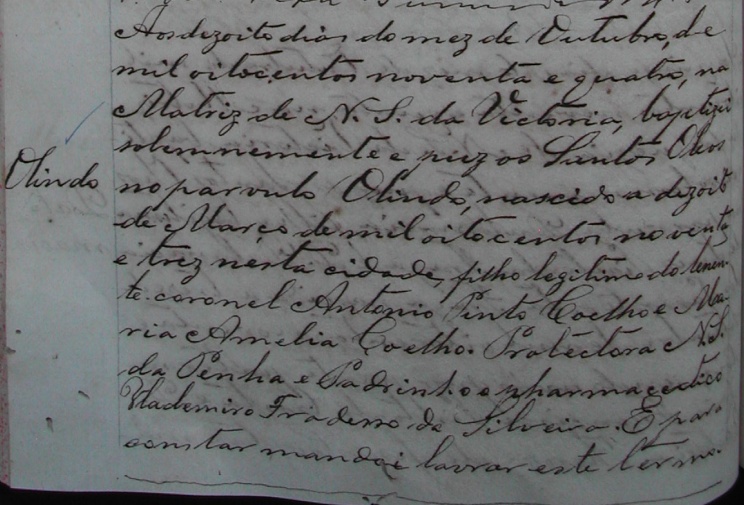 Aos dezoito dias do mez de Outubro, de
mil oitocentos noventa e quatro, na
Matriz de N. S. da Victoria, baptizei
solemnemente e puz os Santos Oleos
Olindo
no parvulo Olindo, nascido a dezoito
de Março de mil oitocentos noventa
e trez nesta cidade, filho legitimo do tenen-
te-coronel Antonio Pinto Coelho e Ma-
ria Amelia Coelho. Protectora N. S.
da Penha e Padrinho o pharmaceutico
da Silveira. E para
constar mandei lavrar este termo.